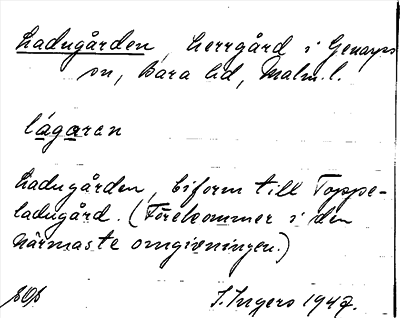 Ladugården, herrgård i Genarps
sn, Bara hd, Malm.l.
lágaren
Ladugården, biform till Toppe-
ladugård. (Förekommer i den
närmaste omgivningen.)
I. Ingers 1947.